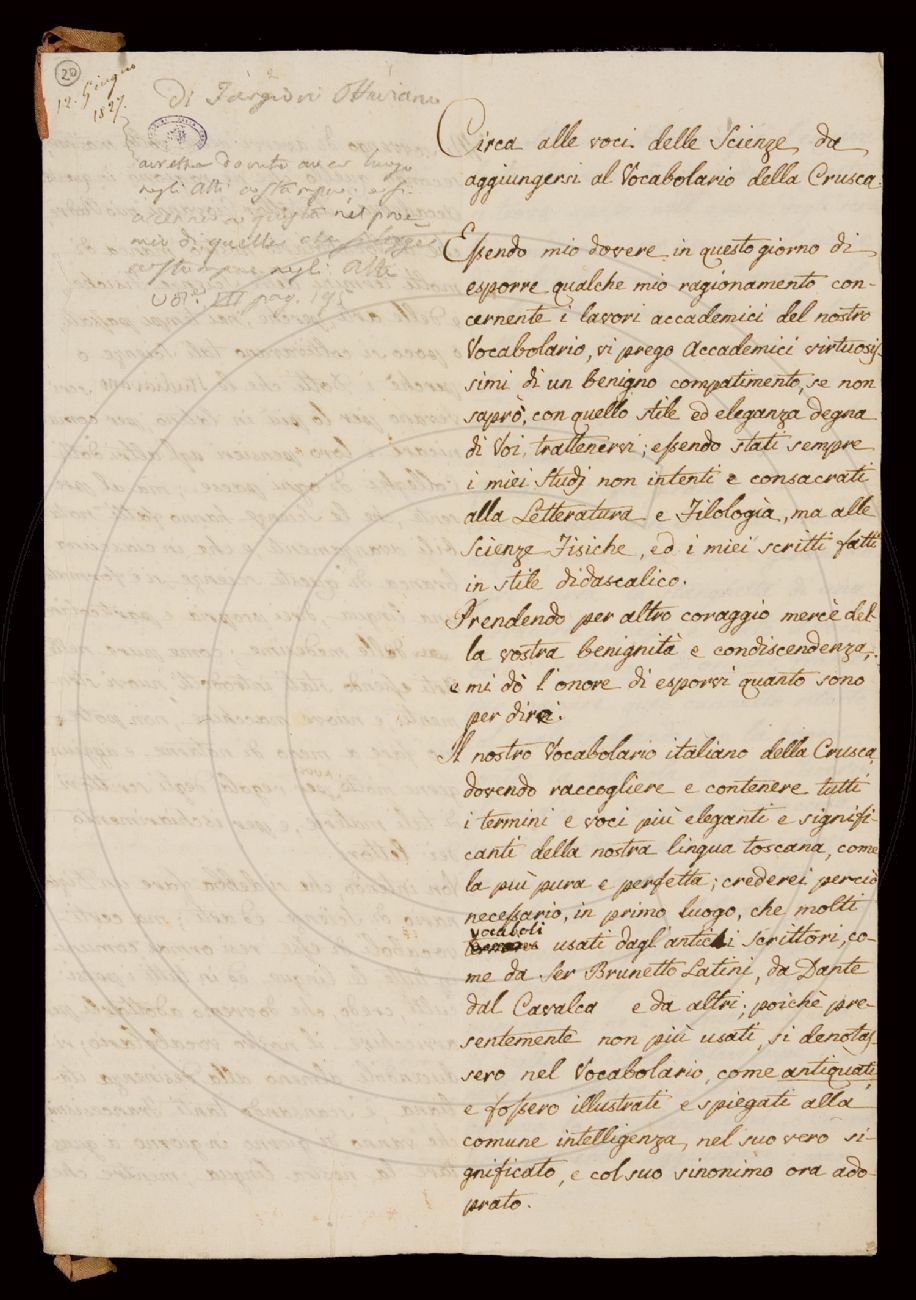 20
12. Giugno
1827.
Di Targioni Ottaviano
avrebbe dovuto aver luogo
negli Atti
nel proe-
mio di quelle
negli Atti
Vol. III pag. 195
Circa alle voci delle Scienze da
aggiungersi al Vocabolario della Crusca.
Essendo mio dovere in questo giorno di
esporre qualche mio ragionamento con-
cernente i lavori accademici del nostro
Vocabolario, vi prego Accademici virtuosis-
simi di un benigno compatimento, se non
saprò, con quello stile ed eleganza degna
di Voi, trattenervi; essendo stati sempre
i miei Studj non intenti e consacrati
alla Letteratura e Filologìa, ma alle
Scienze Fisiche, ed i miei scritti fatti
in stile didascalico.
Prendendo per altro coraggio mercè del-
la vostra benignità e condiscendenza,
e mi dò l'onore di esporvi quanto sono
per dirvi.
Il nostro Vocabolario italiano della Crusca,
dovendo raccogliere e contenere tutti
i termini e voci più eleganti e signifi-
canti della nostra lingua toscana, come
la più pura e perfetta; crederei perciò
necessario, in primo luogo, che molti
vocaboli
usati dagl'antichi Scrittori, co-
me da Ser Brunetto Latini, da Dante
dal Cavalca e da altri; poichè pre-
sentemente non più usati, si denotas-
sero nel Vocabolario, come antiquati,
e fossero illustrati e spiegati alla
comune intelligenza, nel suo vero si-
gnificato, e col suo sinonimo ora ado-
prato.